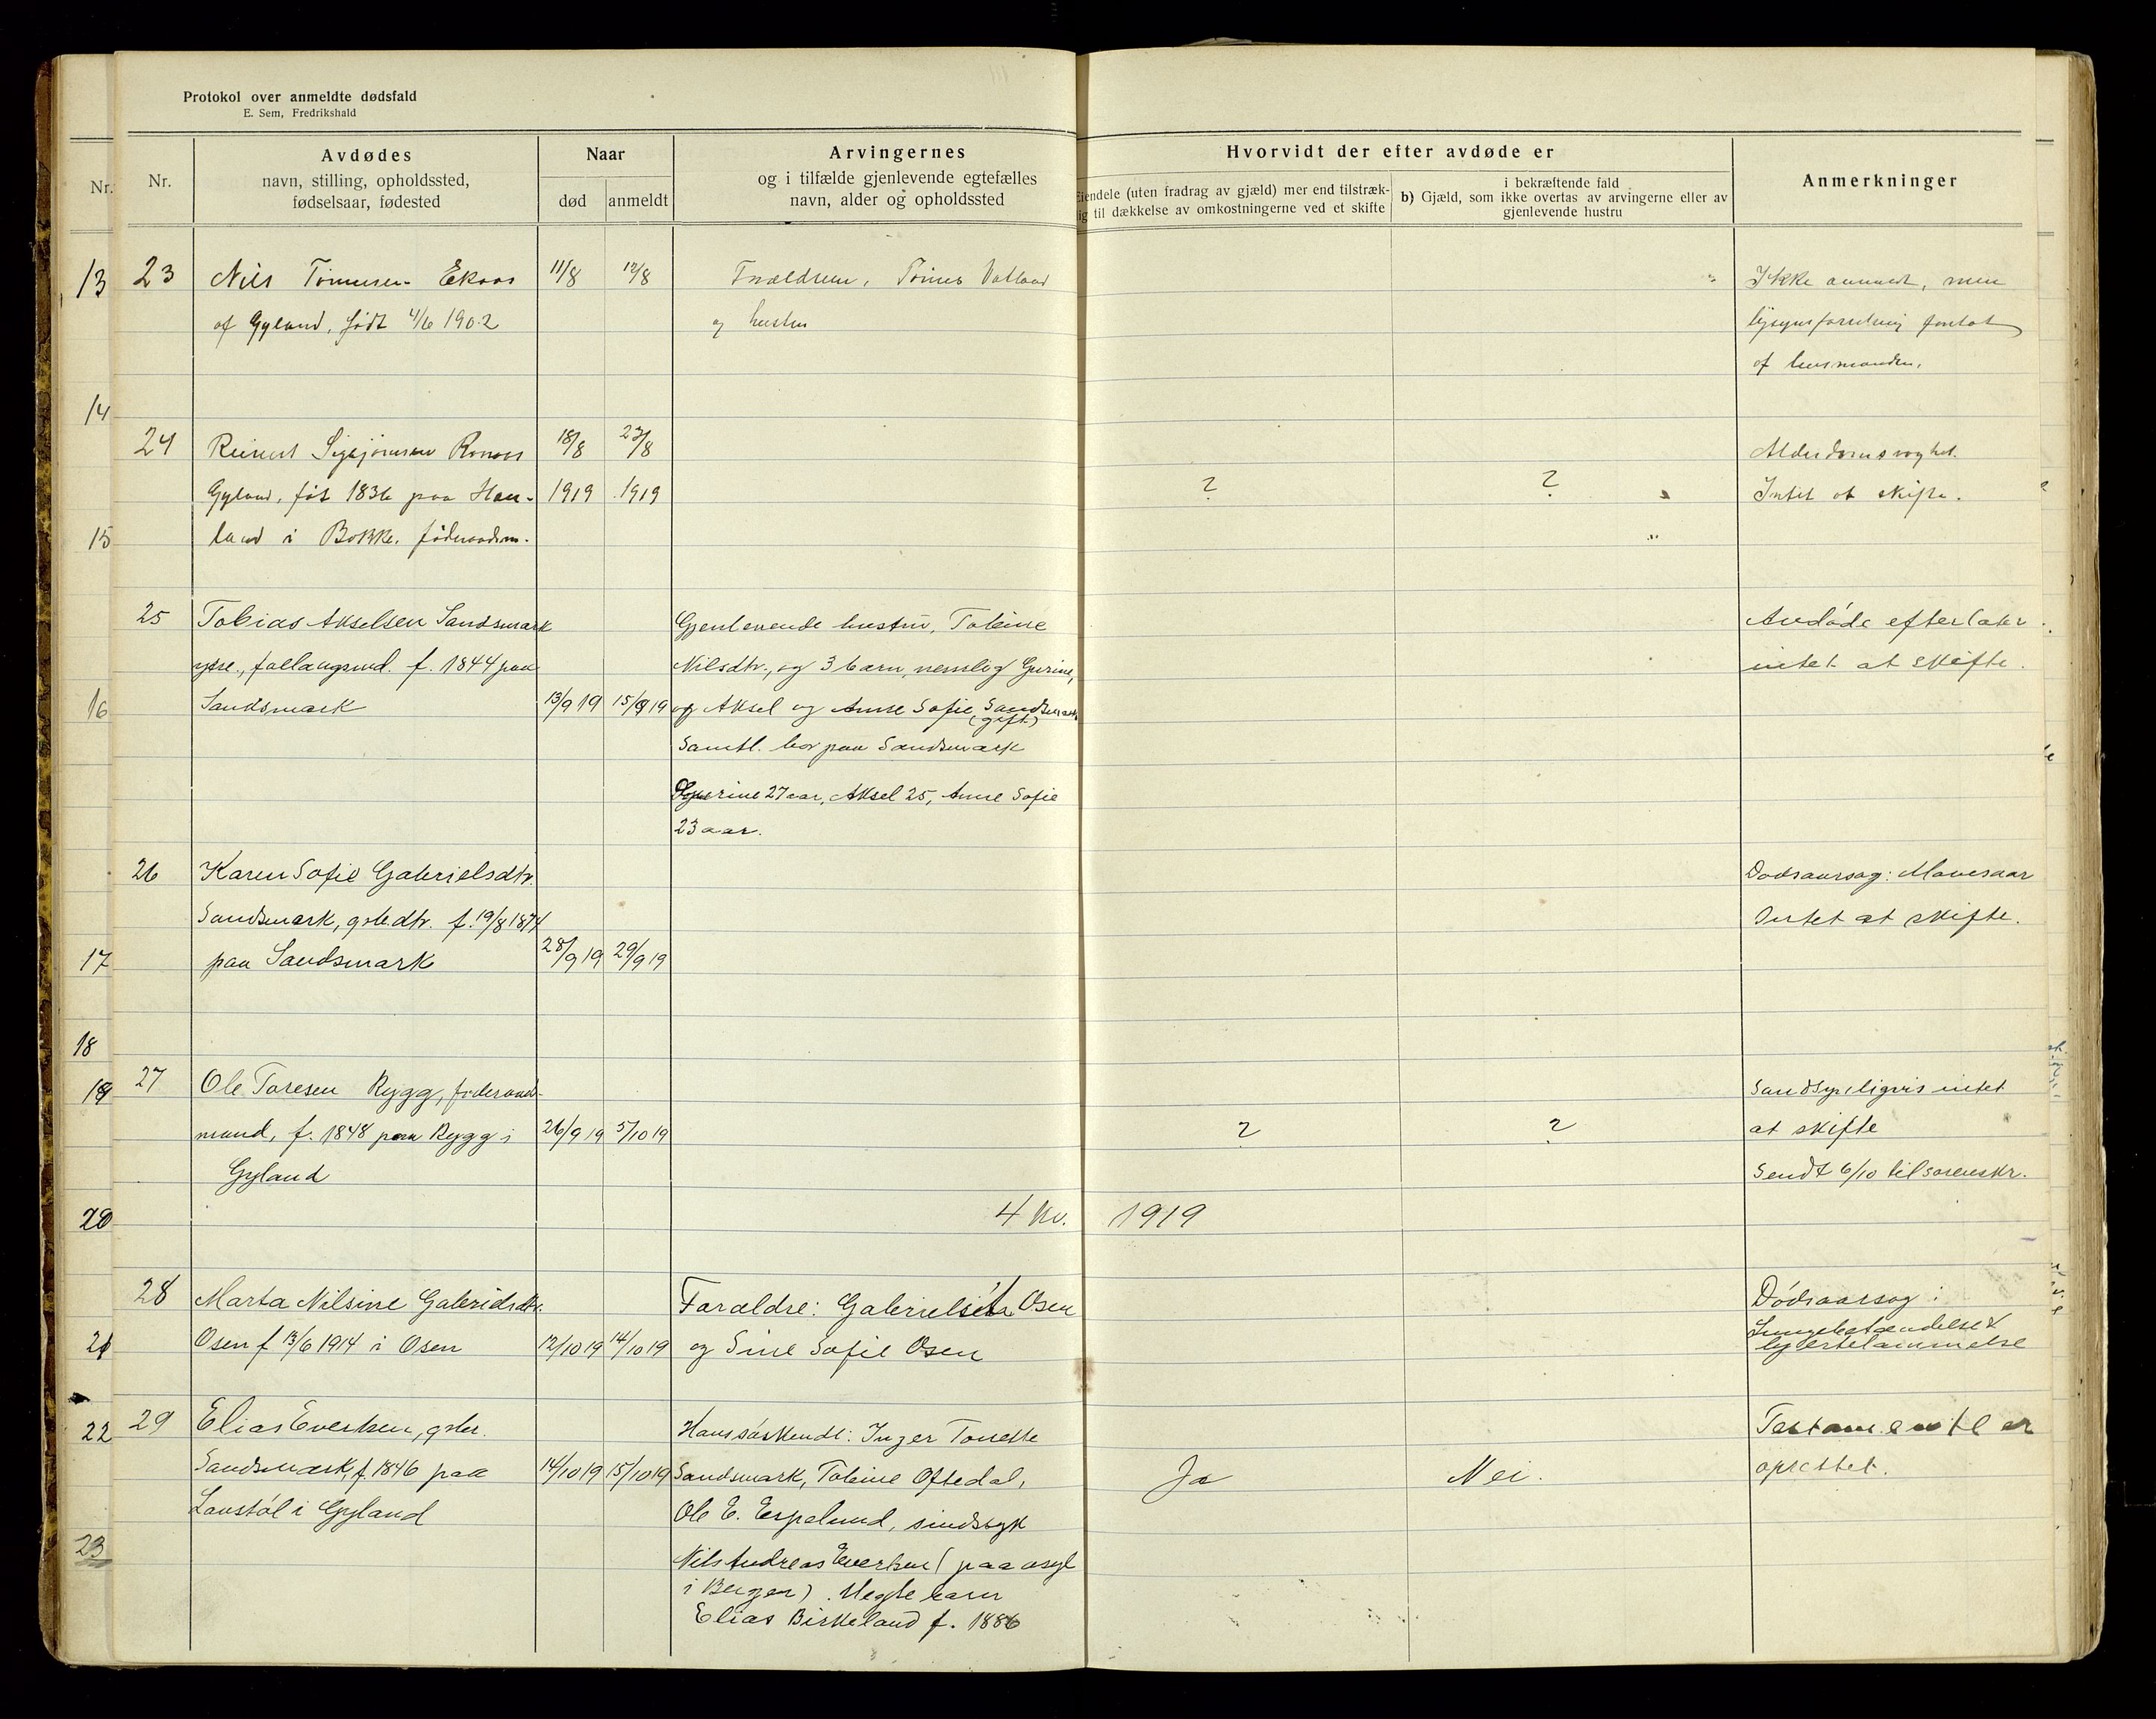 Protokol over anmeldte dødsfald
E. Sem, Fredrikshald
Nr.
Nr.
Avdødes
navn, stilling, opholdssted,
fødselsaar, fødested
Naar
død
anmeldt
Arvingernes
og i tilfælde gjenlevende egtefælles
navn, alder og opholdssted
Hvorvidt der efter avdøde er
Eiendele (uten fradrag av gjæld) mer end tilstræk-
lig til dækkelse av omkostningerne ved et skifte
i bekræftende fald
b) Gjæld, som ikke overtas av arvingerne eller av
gjenlevende hustru
Anmerkninger
13
14
15
16
17
18
19
20
21
22
23
23
Nils Tønnesen Ekaas
af Gyland, født 4/6 1902
11/8
12/8
Forældrene, Tønnes Vatland
og hustru
Ikke anmeldt, men
af lensmanden.
24
18/8
23/8
Gyland, føt 1836 paa Hau-
land i Bakke, føderaadsm.
1919
1919
?
?
Alderdomssvaghet.
Intet at skifte.
25
Tobias Akselsen Sandsmark
ysse., fallaugsmd. f. 1844 paa
Sandsmark
13/9 19
15/9 19
Gjenlevende hustru, Tobine
Nilsdtr., og 3 barn, nemlig Gurine,
og Aksel og Anne Sofie Sandsmark
(gift)
Samtl. bor paa Sandsmark
Gurine 27 aar, Aksel 25, Anne Sofie
23 aar.
Avdøde efterlater
intet at skifte.
26
Karen Sofie Gabrielsdtr.
Sandsmark, gbr.dtr. f. 19/8 1874
paa Sandsmark
28/9 19
29/9 19
Dødsaarsag: Mavesaar
Intet at skifte.
27
Ole Toresen Rygg, føderaad-
mand, f. 1848 paa Rygg i
Gyland
26/9 19
5/10 19
?
?
Sandsynligvis intet
at skifte
Sendt 6/10 til sorenskr.
4 kv. 1919
28
Marta Nilsine Gabrielsdtr.
Osen f 13/6 1914 i Osen
12/10 19
14/10 19
Forældre: Gabriel Osen
og Sine Sofie Osen
Dødsaarsag:
Lungebetændelse &
hjertelammelse
29
Elias Evertsen, gbr.
Sandsmark, f. 1846 paa
Lavstøl i Gyland
14/10 19
15/10 19
Hans søskende: Inger Tonette
Sandsmark, Tobine Oftedal,
Ole E. Espelund, sindssyk
Nils Andreas Evertsen (paa asyl
i Bergen). Uegte barn
Elias Birkeland f. 1886
Ja
Nei.
Testamente er
oprettet.